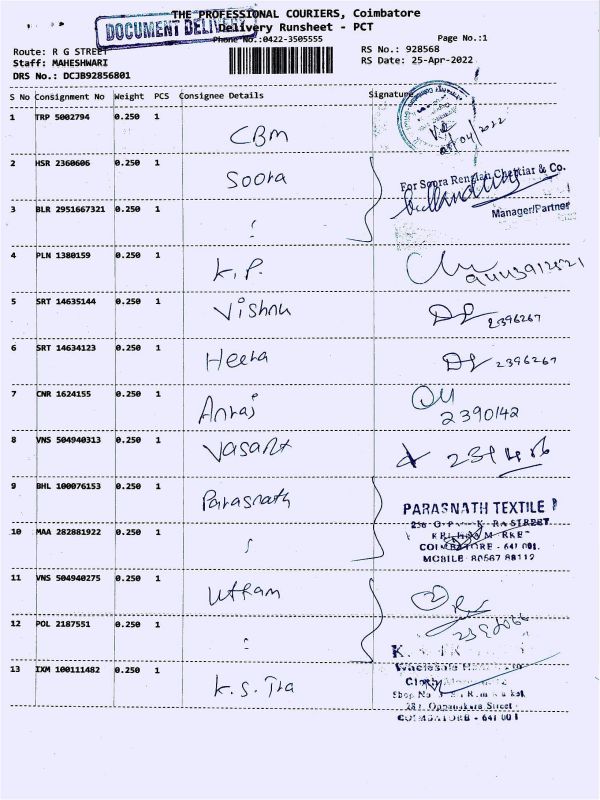 THE PROFESSIONAL COURIERS, Coimbatore
DOCUMENT DELIVERY
Delivery Runsheet - PCT
Phone No.:0422-3505555
Page No.:1
Route: R G STREET
RS No.: 928568
Staff: MAHESHWARI
RS Date: 25-Apr-2022
DRS No.: DCJB92856801
S No Consignment No Weight PCS Consignee Details Signature
1 TRP 5002794 0.250 1
CBM
2 HSR 2360606 0.250 1
Soora
For Soora Rengiah Chettiar & Co.
Manager/Partner
3 BLR 2951667321 0.250 1
4 PLN 1380159 0.250 1
K.P.
5 SRT 14635144 0.250 1
Vishnu
2396267
6 SRT 14634123 0.250 1
Heera
2396267
7 CNR 1624155 0.250 1
2390142
8 VNS 504940313 0.250 1
Vasant
9 BHL 100076153 0.250 1
Parasnath
PARASNATH TEXTILE
STREET
10 MAA 282881922 0.250 1
COIMBATORE - 641 001.
MOBILE 80567 88112
11 VNS 504940275 0.250 1
Uttam
12 POL 2187551 0.250 1
13 IXM 100111482 0.250 1
K.S.
Oppanakara Street
COIMBATORE - 641 001